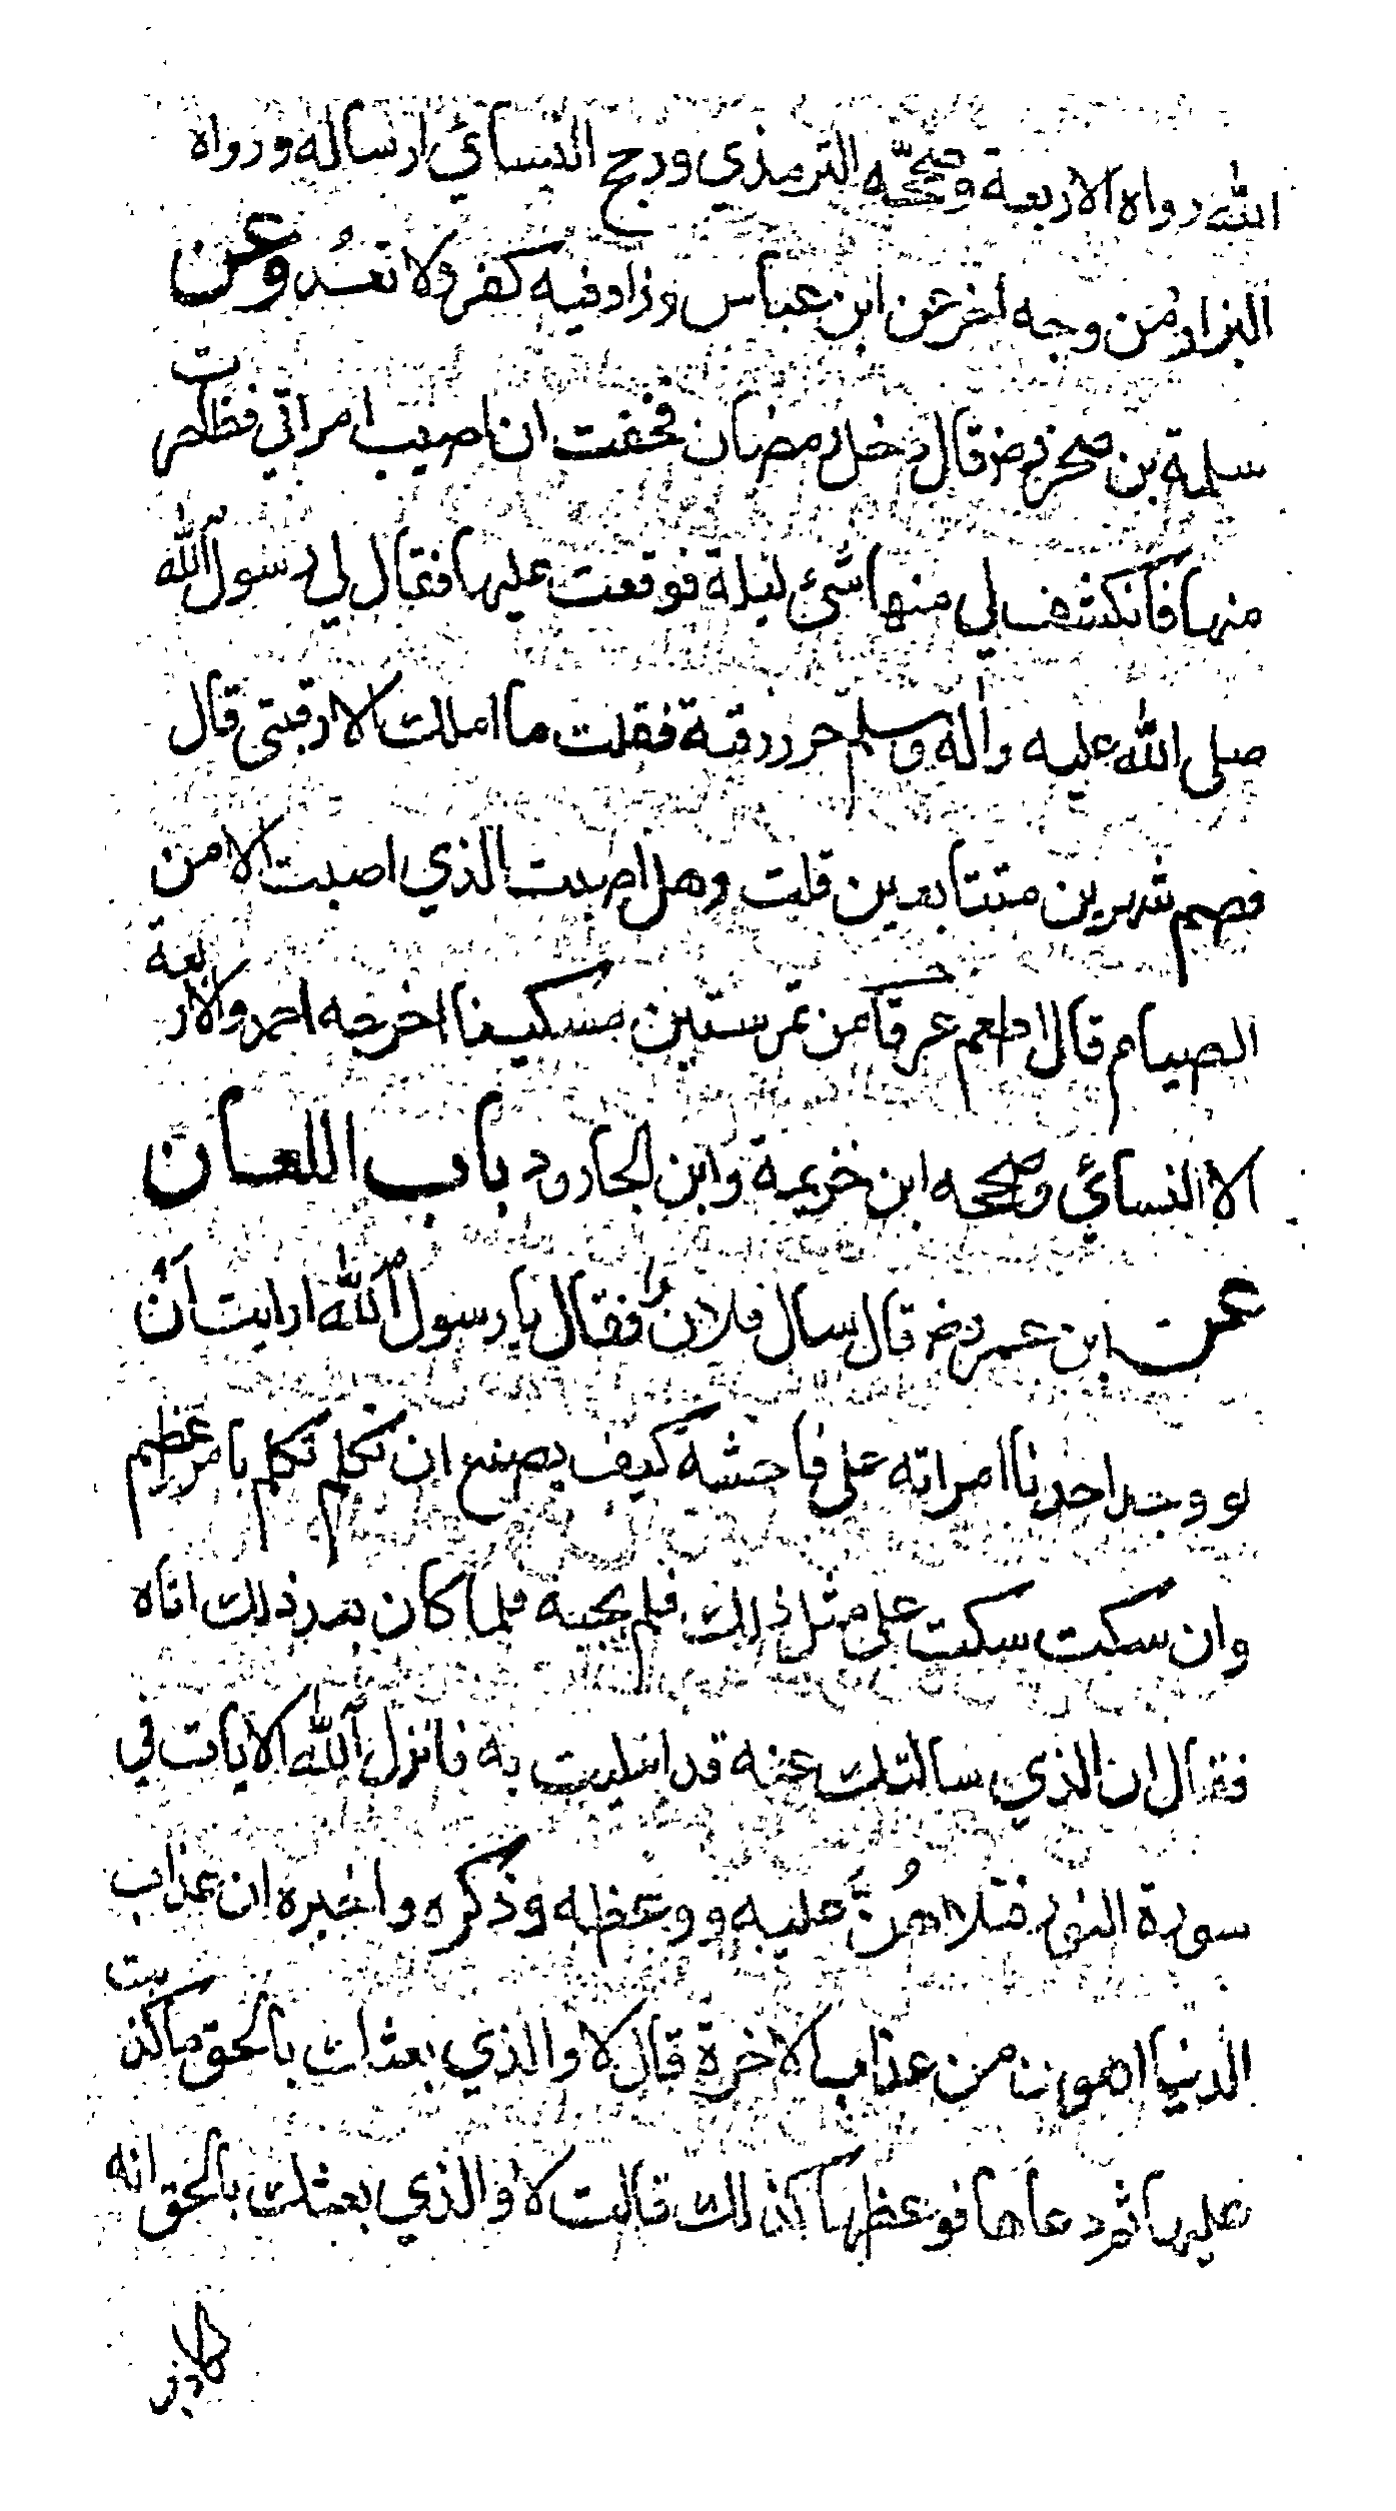 الله رواه الاربعة وصححّه الترمذي ورجح النسائي ارساله ورواه
البزار من وجه اخر عن ابن عباس وزاد فيه كفر ولا تعُد وعن
سلمة بن صخر رض قال دخل رمضان فخفت ان اصيب امراتي فظاهرت
منها فانكشف لي منها شئ ليلة فوقعت عليها فقال لي رسول الله
صلى الله عليه واله وسلم حرر رقبة فقلت ما املك الا رقبتي قال
فصم شهرين متتابعين قلت وهل اصبت الذي اصبت الا من
الصيام قال اطعم عرقا من تمر ستين مسكينا اخرجه احمد والاربعة
الا النسائي وصححه ابن خزيمة وابن الجارود باب اللعان
عن ابن عمر رض قال سال فلان فقال يا رسول الله ارايت ان
لو وجد احدنا امراته على فاحشة كيف يصنع ان تكلم تكلم بامر عظيم
وان سكت سكت على مثل ذلك فلم يجبه فلما كان بعد ذلك اتاه
فقال ان الذي سالتك عنه قد ابتليت به فانزل الله الايات في
سورة النور فتلاهُنَّ عليه ووعظه وذكره واخبره ان عذاب
الدنيا اهون من عذاب الاخرة قال لا والذي بعثك بالحق ما كذبت
عليها ثم دعاها فوعظها كذلك قالت لا والذي بعثك بالحق انه